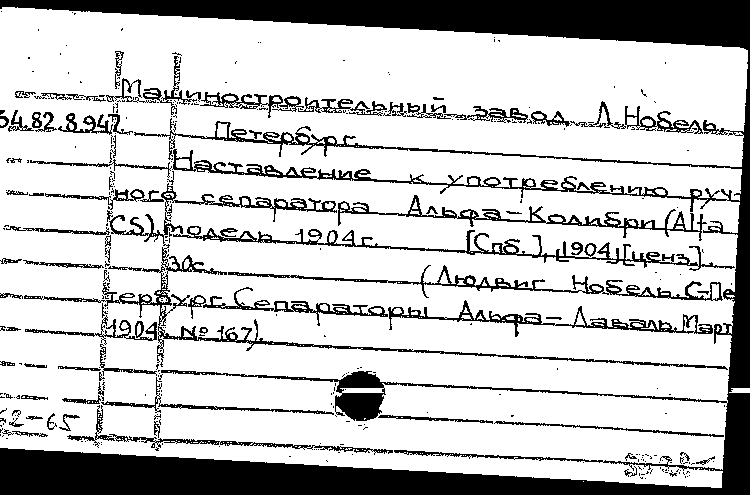 Машиностроительный завод Л.Нобель.
34.82.8.947.
Петербург.
Наставление к употреблению руч-
ного сепаратора Альфа-Колибри (Alfa
CS), модель 1904г. [Спб.], 1904 [ценз].
30с. (Людвиг Нобель. С-Пе
тербург. Сепараторы Альфа-Лаваль. Март
1904. № 167).
62-65